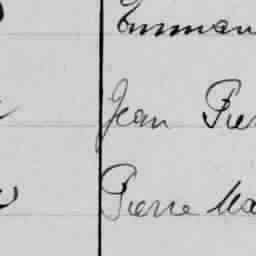 Emman
Jean Pier
Pierre Ma